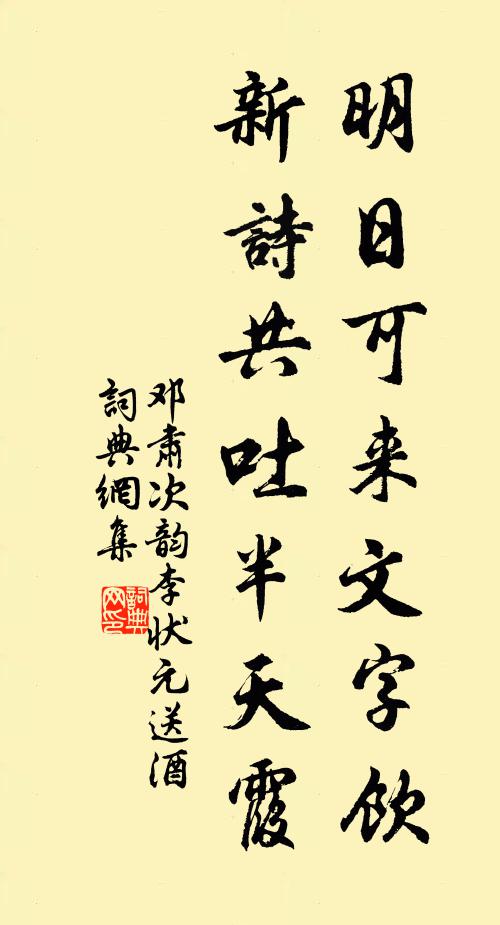 明日可来文字飲
新詩共吐半天霞
邓肃次韵李状元送酒
詞典網集
詞典
网印